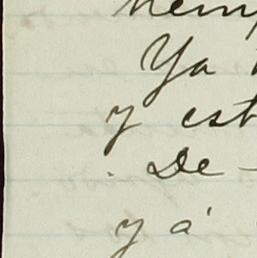 Ya
y est
De
y á